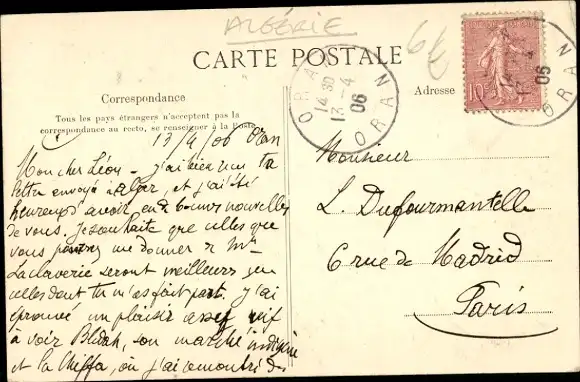 ALGÉRIE
6€
CARTE POSTALE
Correspondance
Adresse
Tous les pays étrangers n'acceptent pas la
correspondance au recto, se renseigner à la Poste
ORAN
14 30
13 - 4
06
ORAN
10
06
ORAN
13/4/06 Oran
Mon cher Léon - J'ai bien reçu ta
lettre envoyé à Alger, et j'ai été
heureux d'avoir de bonnes nouvelles
de vous. Je souhaite que celles que
vous me donner de Mme
Laclaverie seront meilleures que
celles dont tu m'as fait part. J'ai
éprouvé un plaisir assez vif
à voir Blidah, son marché indigène
et la Chiffa, où j'ai remonté
Monsieur
L. Dufourmantelle
6 rue de Madrid
Paris